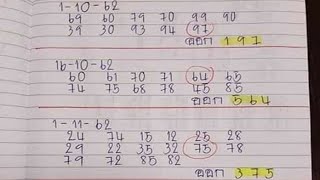 1-10-62
69 60 79 70 99 90
39 30 93 94 97
ออก 197
16-10-62
60 61 70 71 64 65
74 75 68 78 45 85
ออก 564
1-11-62
24 74 15 12 25 28
29 22 35 32 75 78
79 72 85 82
ออก 375